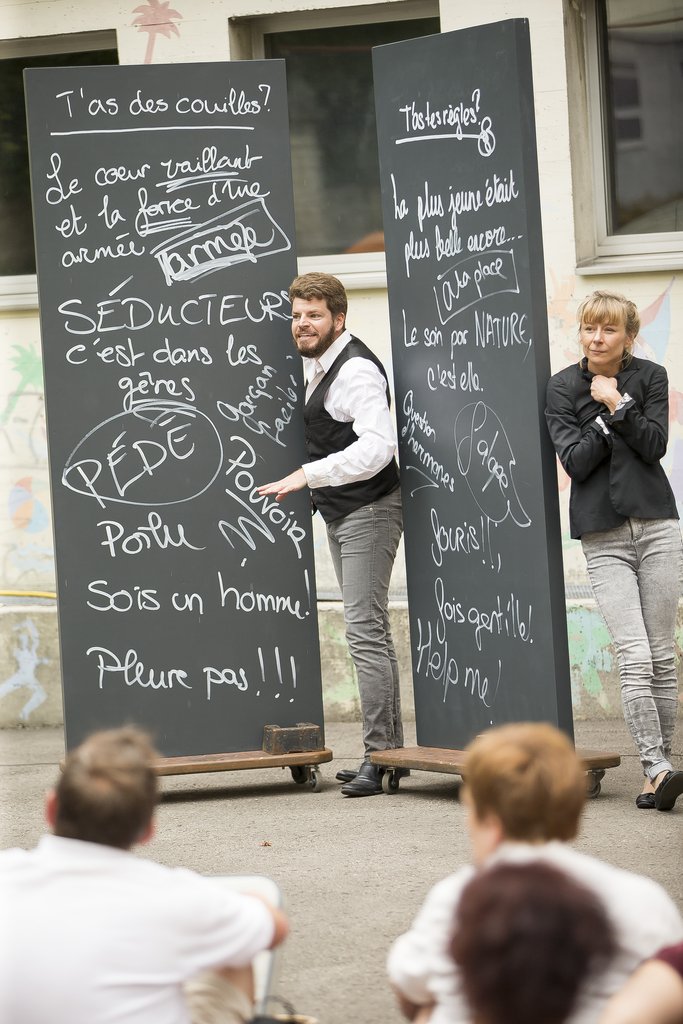 T'as des couilles?
Le coeur vaillant
et la force d'une
armée armée
SÉDUCTEURS
c'est dans les
gênes
garçon
facile
PÉDÉ
Pouvoir
Poilu
Sois un homme!
Pleure pas!!!
T'as tes règles?
La plus jeune était
plus belle encore...
A ta place
Le soin par NATURE,
c'est elle.
Question
hormones
Salope
Souris!!,
Sois gentille!
Help me!